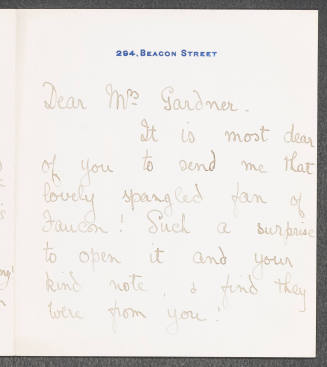 294, BEACON STREET
Dear Mrs Gardner.
It is most dear
of you to send me that
lovely spangled fan of
Faucon! Such a surprise
to open it and your
kind note, & find they
were from you!